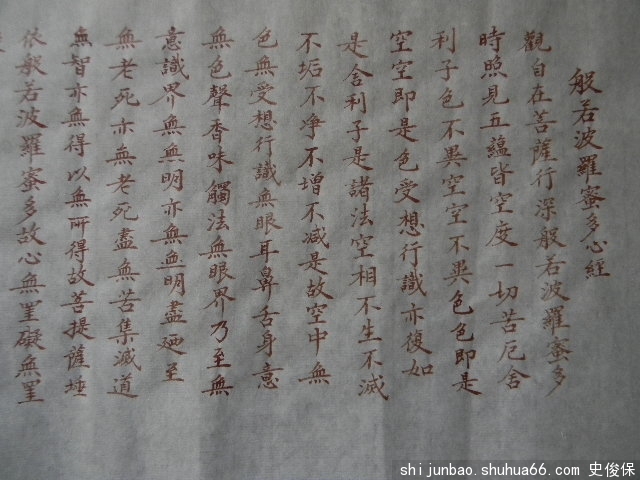 般若波羅蜜多心經
觀自在菩薩行深般若波羅蜜多
時照見五蘊皆空度一切苦厄舍
利子色不異空空不異色色即是
空空即是色受想行識亦復如
是舍利子是諸法空相不生不滅
不垢不淨不增不減是故空中無
色無受想行識無眼耳鼻舌身意
無色聲香味觸法無眼界乃至無
意識界無無明亦無無明盡廼至
無老死亦無老死盡無苦集滅道
無智亦無得以無所得故菩提薩埵
依般若波羅蜜多故心無罣礙無罣
shijunbao.shuhua66.com 史俊保